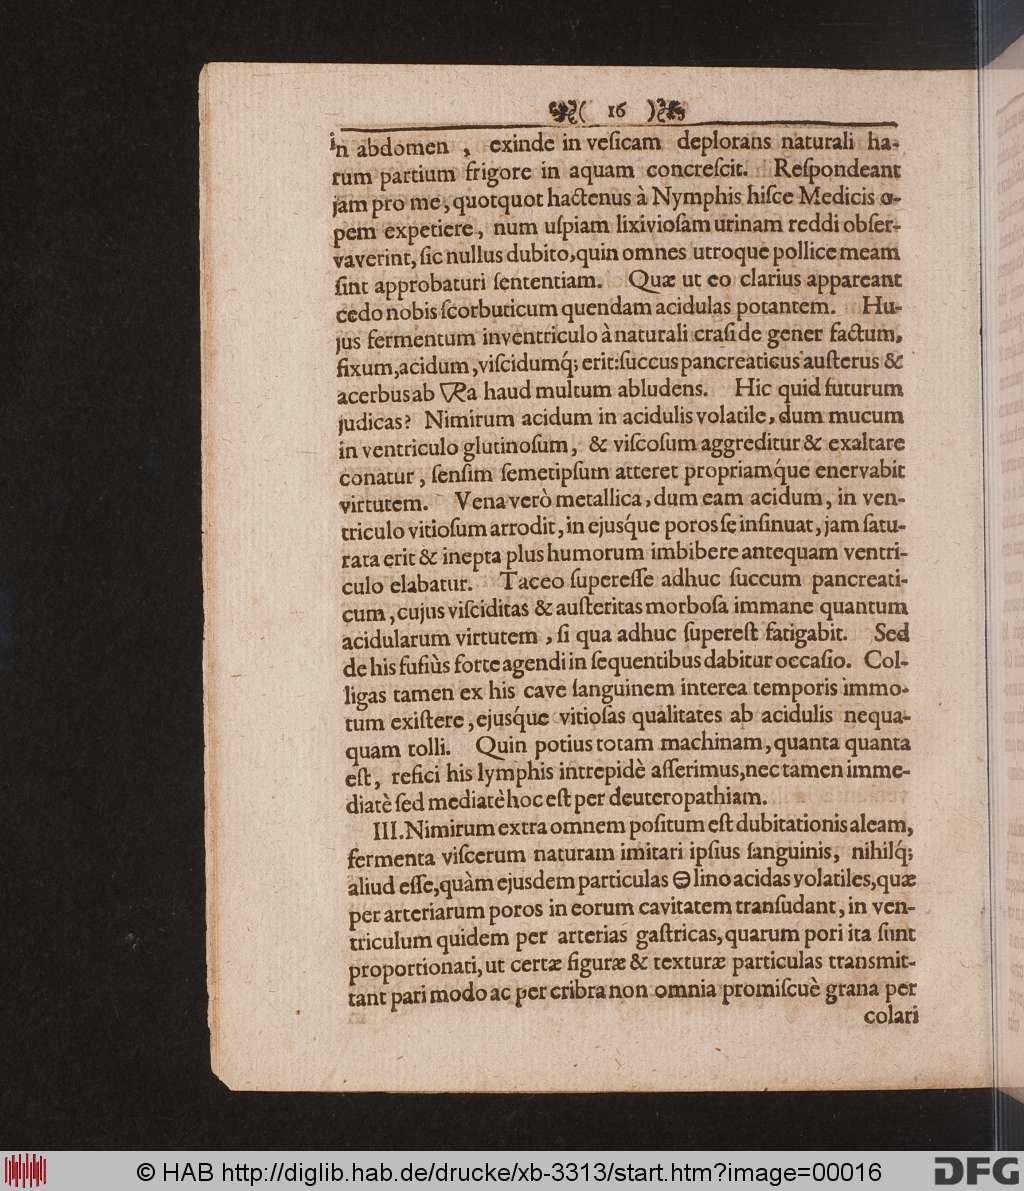 ( 16 )
in abdomen , exinde in veſicam deplorans naturali ha-
rum partium frigore in aquam concreſcit. Reſpondeant
jam pro me, quotquot hactenus à Nymphis hiſce Medicis o-
pem expetiere, num uſpiam lixivioſam urinam reddi obſer-
vaverint, ſic nullus dubito, quin omnes utroque pollice meam
ſint approbaturi ſententiam. Quæ ut eo clarius appareant
cedo nobis ſcorbuticum quendam acidulas potantem. Hu-
jus fermentum inventriculo à naturali craſi de gener factum,
fixum, acidum, viſcidumq́; erit: ſuccus pancreaticus auſterus &
acerbus ab 🜄Ra haud multum abludens. Hic quid futurum
judicas? Nimirum acidum in acidulis volatile, dum mucum
in ventriculo glutinoſum, & viſcoſum aggreditur & exaltare
conatur, ſenſim ſemetipſum atteret propriamq́ue enervabit
virtutem. Vena verò metallica, dum eam acidum, in ven-
triculo vitioſum arrodit, in ejusq́ue poros ſe inſinuat, jam ſatu-
rata erit & inepta plus humorum imbibere antequam ventri-
culo elabatur. Taceo ſupereſſe adhuc ſuccum pancreati-
cum, cujus viſciditas & auſteritas morboſa immane quantum
acidularum virtutem, ſi qua adhuc ſupereſt fatigabit. Sed
de his fuſiùs forte agendi in ſequentibus dabitur occaſio. Col-
ligas tamen ex his cave ſanguinem interea temporis immo-
tum exiſtere, ejusq́ue vitioſas qualitates ab acidulis nequa-
quam tolli. Quin potius totam machinam, quanta quanta
eſt, refici his lymphis intrepidè aſſerimus, nec tamen imme-
diatè ſed mediatè hoc eſt per deuteropathiam.
III. Nimirum extra omnem poſitum eſt dubitationis aleam,
fermenta viſcerum naturam imitari ipſius ſanguinis, nihilq́;
aliud eſſe, quàm ejusdem particulas 🜔lino acidas volatiles, quæ
per arteriarum poros in eorum cavitatem tranſudant, in ven-
triculum quidem per arterias gaſtricas, quarum pori ita ſunt
proportionati, ut certæ figuræ & texturæ particulas transmit-
tant pari modo ac per cribra non omnia promiſcuè grana per
colari
© HAB http://diglib.hab.de/drucke/xb-3313/start.htm?image=00016
DFG